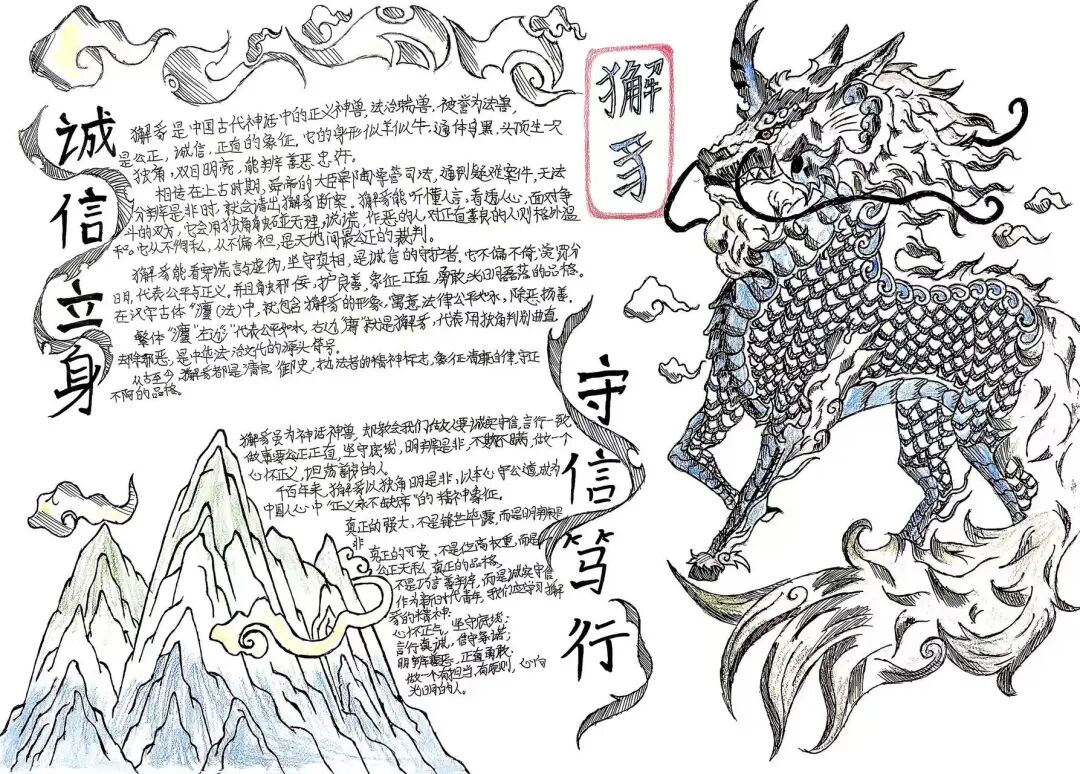 诚信立身
獬豸
獬豸是中国古代神话中的正义神兽,法治瑞兽,被誉为法兽,
是公正,诚信,正直的象征。它的身形似羊似牛,通体黑,头顶生一只
独角,双目明亮,能判辨善恶忠奸。
相传在上古时期,舜帝的大臣皋陶掌管司法,遇到疑难案件,无法
分辨是非时,就会请出獬豸断案,獬豸能听懂人言,看透人心,面对争
斗的双方,它会用独角触碰无理,说谎,作恶的人,对正直善良的人则格外温
和。它从不徇私,从不偏袒,是天地间最公正的裁判。
獬豸能看穿谎言与虚伪,坚守真相,是诚信的守护者,它不偏不倚,
明,代表公平与正义,并且触邪佞,护良善,象征正直,勇敢,光明磊落的品格。
在汉字古体“灋(法)中,就包含獬豸的形象,寓意法律公平如水,除恶扬善。
繁体“灋”左边“氵”代表公平如水,右边“廌”就是獬豸,代表用独角判别曲直
去除邪恶,是中华法治文化的源头符号。
从古至今,獬豸都是清官,御史,执法者的精神标志,象征清廉自律,守正
不阿的品格。
守信笃行
獬豸虽为神话神兽,却教会我们做人要诚实守信,言行一致
做事要公正正直,坚守底线,明辨是非,不欺不瞒,做一个
心怀正义,坦荡的人
千百年来,獬豸以独角明是非,以本心守公道,成为
中国人心中“正义永不缺席”的精神象征。
真正的强大,不是锋芒毕露,而是明辨是
非
真正的可贵,不是位高权重,而是
公正无私,真正的品格,
不是巧言善辩,而是诚实守信
作为新时代青年,我们应学习獬
豸的精神:
心怀正气,坚守底线;
言行真诚,信守承诺;
明辨善恶,正直勇敢;
做一个有担当,有原则,心向
光明的人。